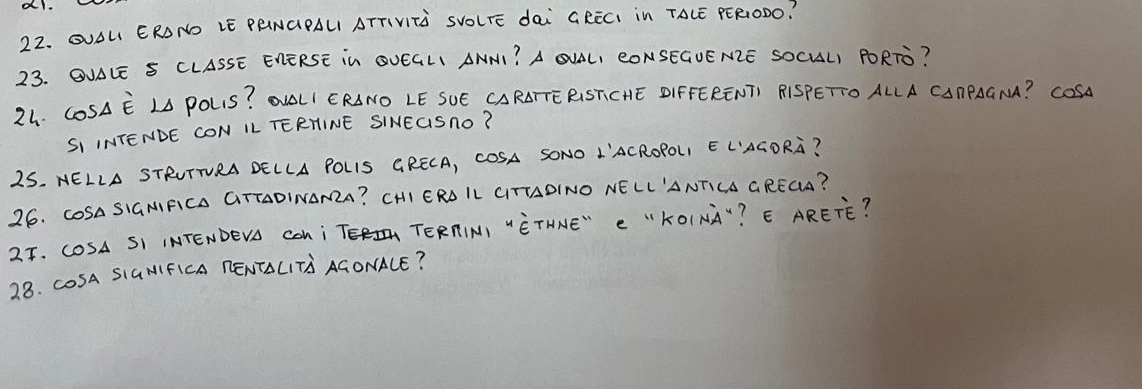 22. QUALI ERANO LE PRINCIPALI ATTIVITÀ SVOLTE dai GRECI in TALE PERIODO?
23. QUALE CLASSE EMERSE in QUEGLI ANNI? A QUALI CONSEGUENZE SOCIALI PORTÒ?
24. COSA È LA POLIS? QUALI ERANO LE SUE CARATTERISTICHE DIFFERENTI RISPETTO ALLA CAMPAGNA? COSA
SI INTENDE CON IL TERMINE SINECISMO?
25. NELLA STRUTTURA DELLA POLIS GRECA, COSA SONO L'ACROPOLI E L'AGORÀ?
26. COSA SIGNIFICA CITTADINANZA? CHI ERA IL CITTADINO NELL'ANTICA GRECIA?
27. COSA SI INTENDEVA con i TERMINI "ÈTHNE" e "KOINÀ"? E ARETÈ?
28. COSA SIGNIFICA MENTALITÀ AGONALE?